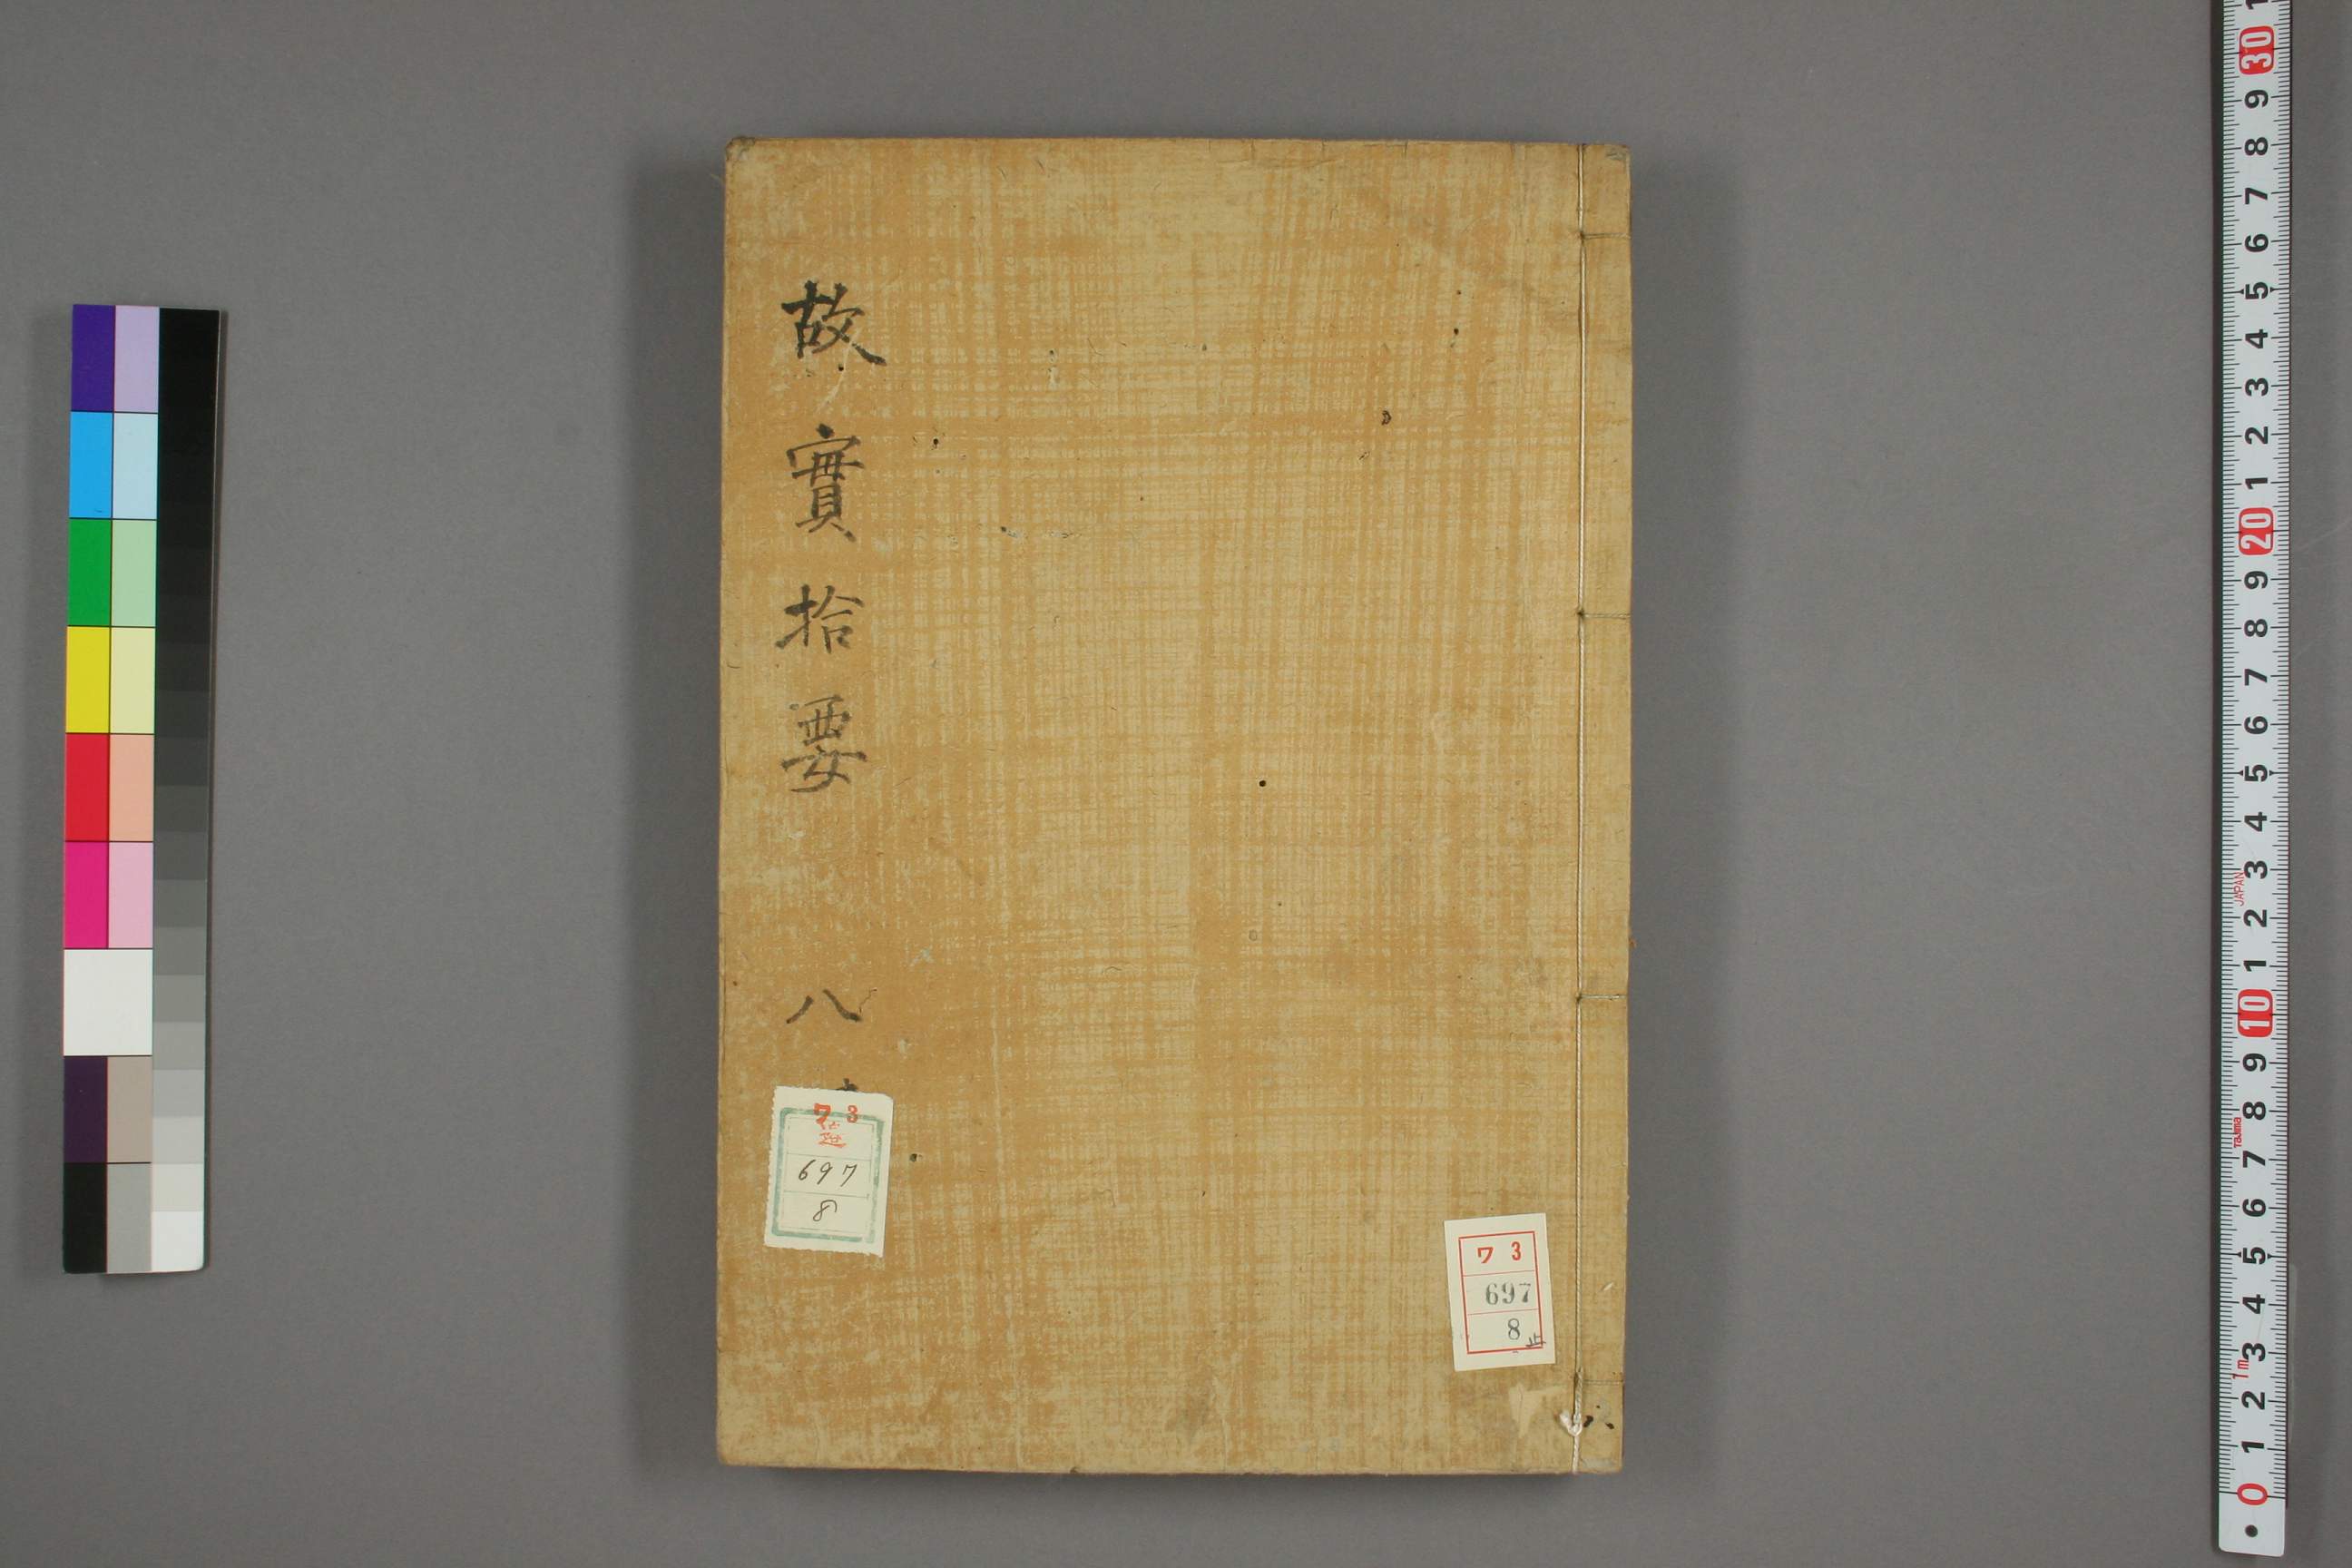 故實拾要 八
ワ 3
697
8
ワ 3
697
8
止
30
9
8
7
6
5
4
3
2
1
20
9
8
7
6
5
4
3
JAPAN
2
1
10
9
8
Tajima
7
6
5
4
3
1m
2
1
0